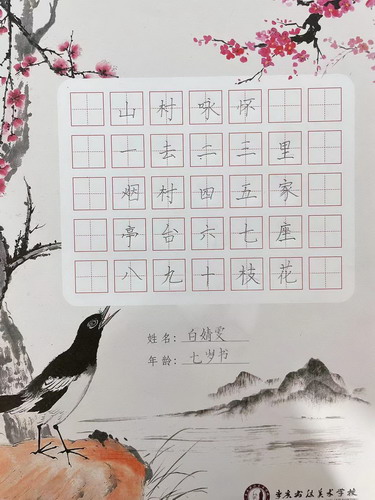 山村咏怀
一去二三里
烟村四五家
亭台六七座
八九十枝花
姓名：白婧雯
年龄：七岁书
重庆书法美术学校